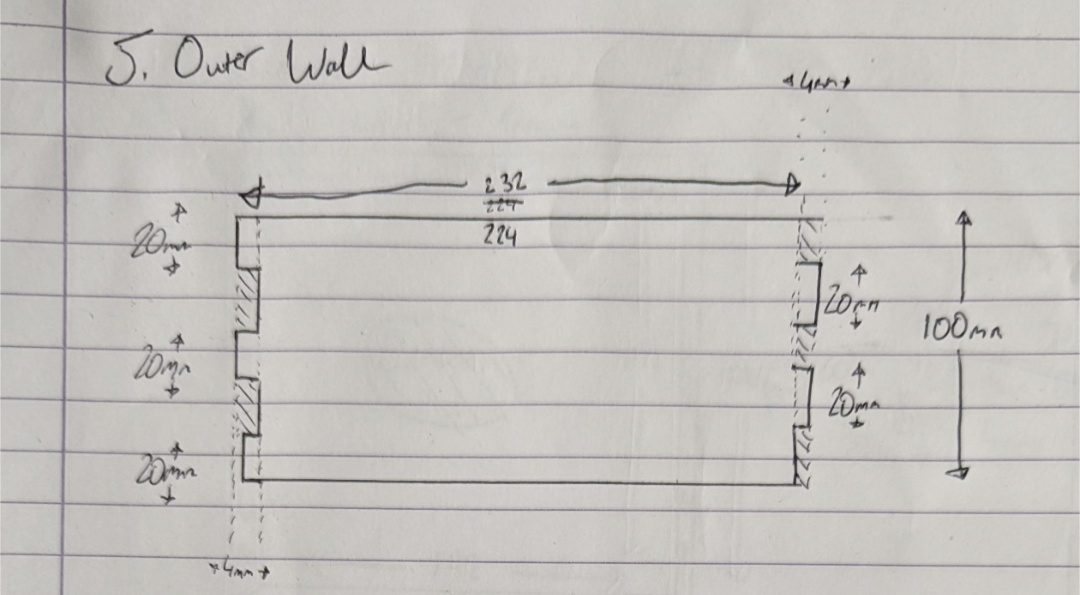 5. Outer Wall
4mm
232
224
20mm
224
20mm
100mm
20mm
20mm
20mm
4mm